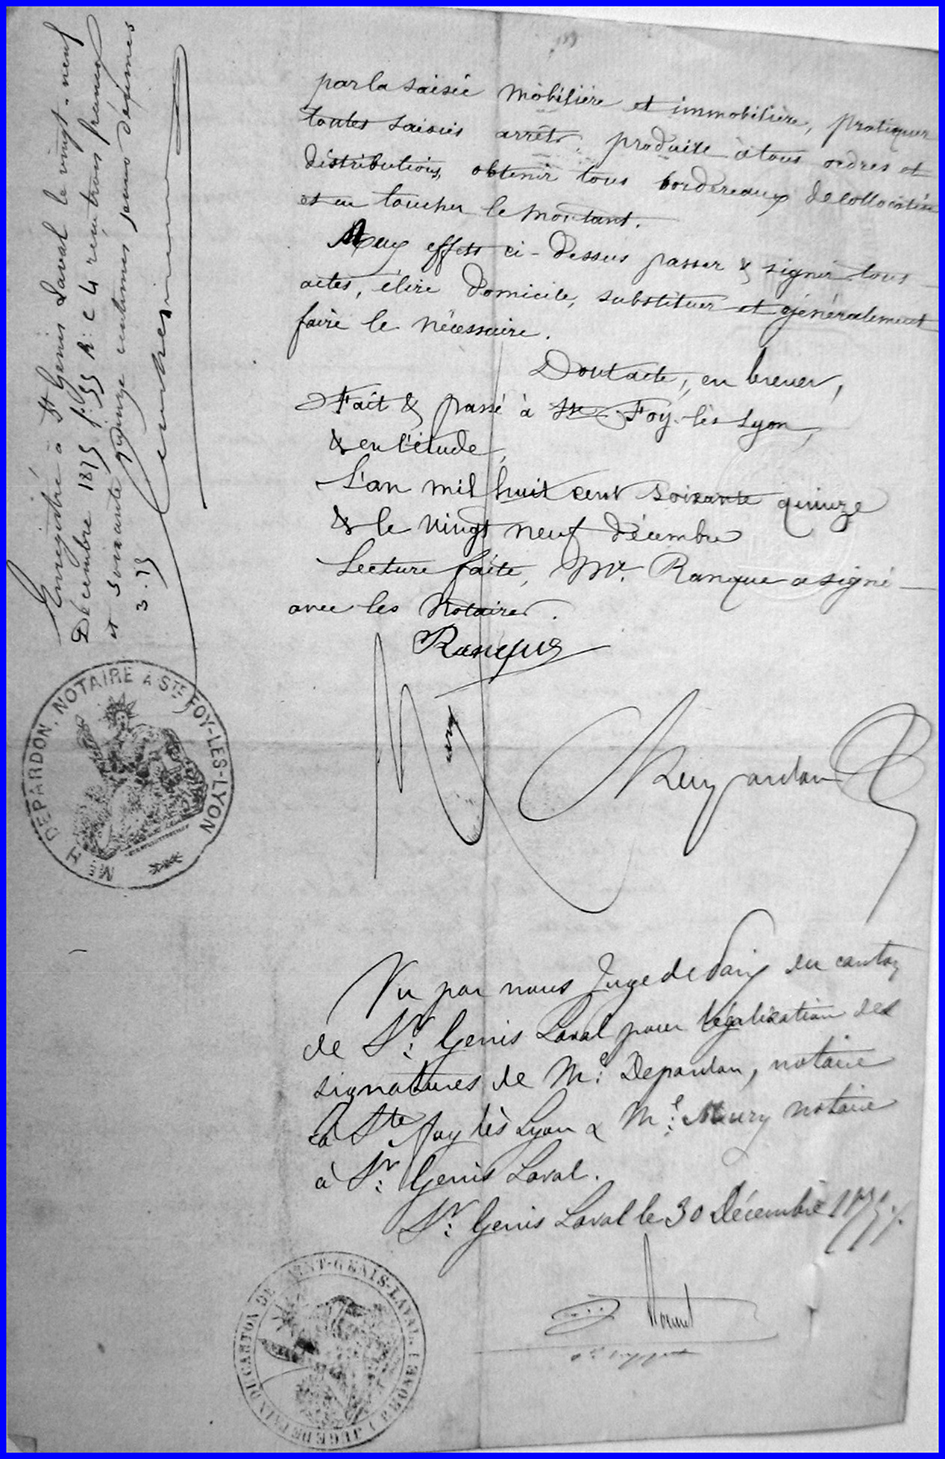 par la saisie mobilière et immobilière, pratiquer
toutes saisies arrêts, produire à tous ordres et
distributions, obtenir tous bordereaux de collocation
et en toucher le montant.
Aux effets ci-dessus passer & signer tous
actes, élire domicile, substituer et généralement
faire le nécessaire.
Dont acte, en brevet,
Fait & passé à Ste-Foy-lès Lyon,
& en l'étude,
L'an mil huit cent soixante quinze
& le vingt neuf décembre
Lecture faite, Mr. Ranque a signé
avec les Notaires.
Ranque
Mury
Depardon
Enregistré à St Genis Laval le vingt-neuf
Décembre 1875 f: 99 R: c 4 reçu trois francs
et soixante quinze centimes pour décimes
3.75
Me H DEPARDON, NOTAIRE A STE FOY-LES-LYON
Vu par nous Juge de Paix du canton
de St. Genis Laval pour légalisation des
signatures de Me. Depardon, notaire
à Ste foy lès Lyon & Me. Mury notaire
à St. Genis Laval.
St. Genis Laval le 30 Décembre 1875./.
JUGE DE PAIX DU CANTON DE SAINT-GENIS-LAVAL (RHONE)